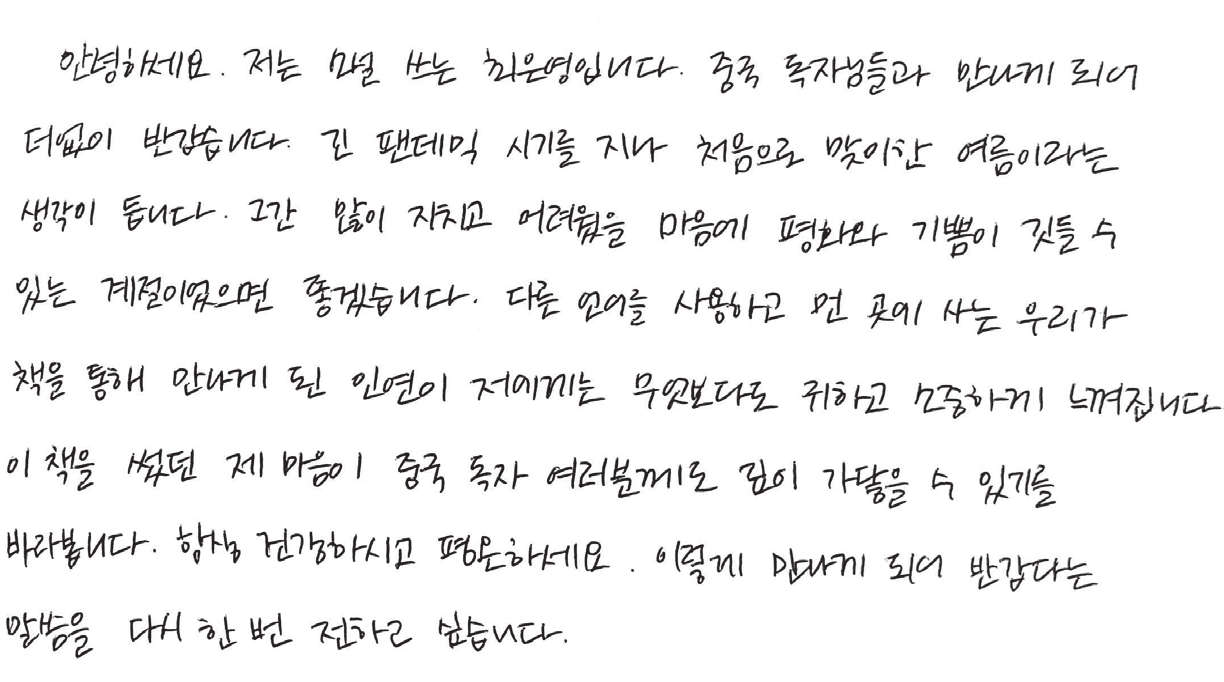 안녕하세요. 저는 소설 쓰는 최은영입니다. 중국 독자님들과 만나게 되어
더없이 반갑습니다. 긴 팬데믹 시기를 지나 처음으로 맞이한 여름이라는
생각이 듭니다. 그간 많이 지치고 어려웠을 마음에 평화와 기쁨이 깃들 수
있는 계절이었으면 좋겠습니다. 다른 언어를 사용하고 먼 곳에 사는 우리가
책을 통해 만나게 된 인연이 저에게는 무엇보다도 귀하고 소중하게 느껴집니다
이 책을 썼던 제 마음이 중국 독자 여러분께도 깊이 가닿을 수 있기를
바라봅니다. 항상 건강하시고 평온하세요. 이렇게 만나게 되어 반갑다는
말씀을 다시 한 번 전하고 싶습니다.